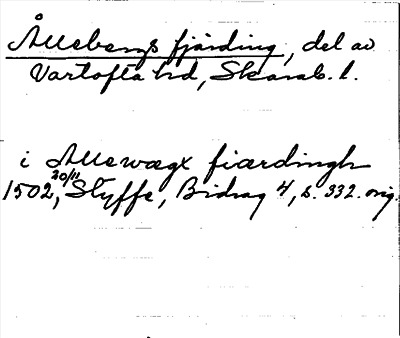 Ållebergs fjärding, del av
Vartofta hd, Skarab. l.
i Allewægx fiærdingh
1502 20/11, Styffe, Bidrag 4, s. 332. orig.